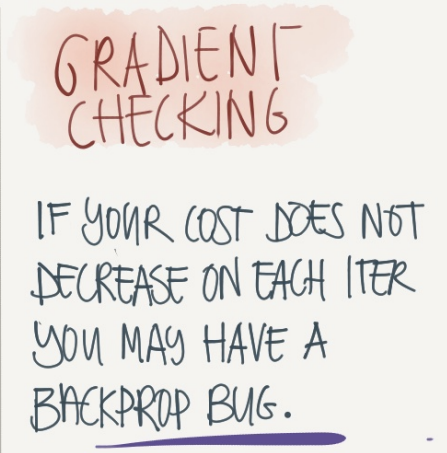 GRADIENT
CHECKING
IF YOUR COST DOES NOT
DECREASE ON EACH ITER
YOU MAY HAVE A
BACKPROP BUG.